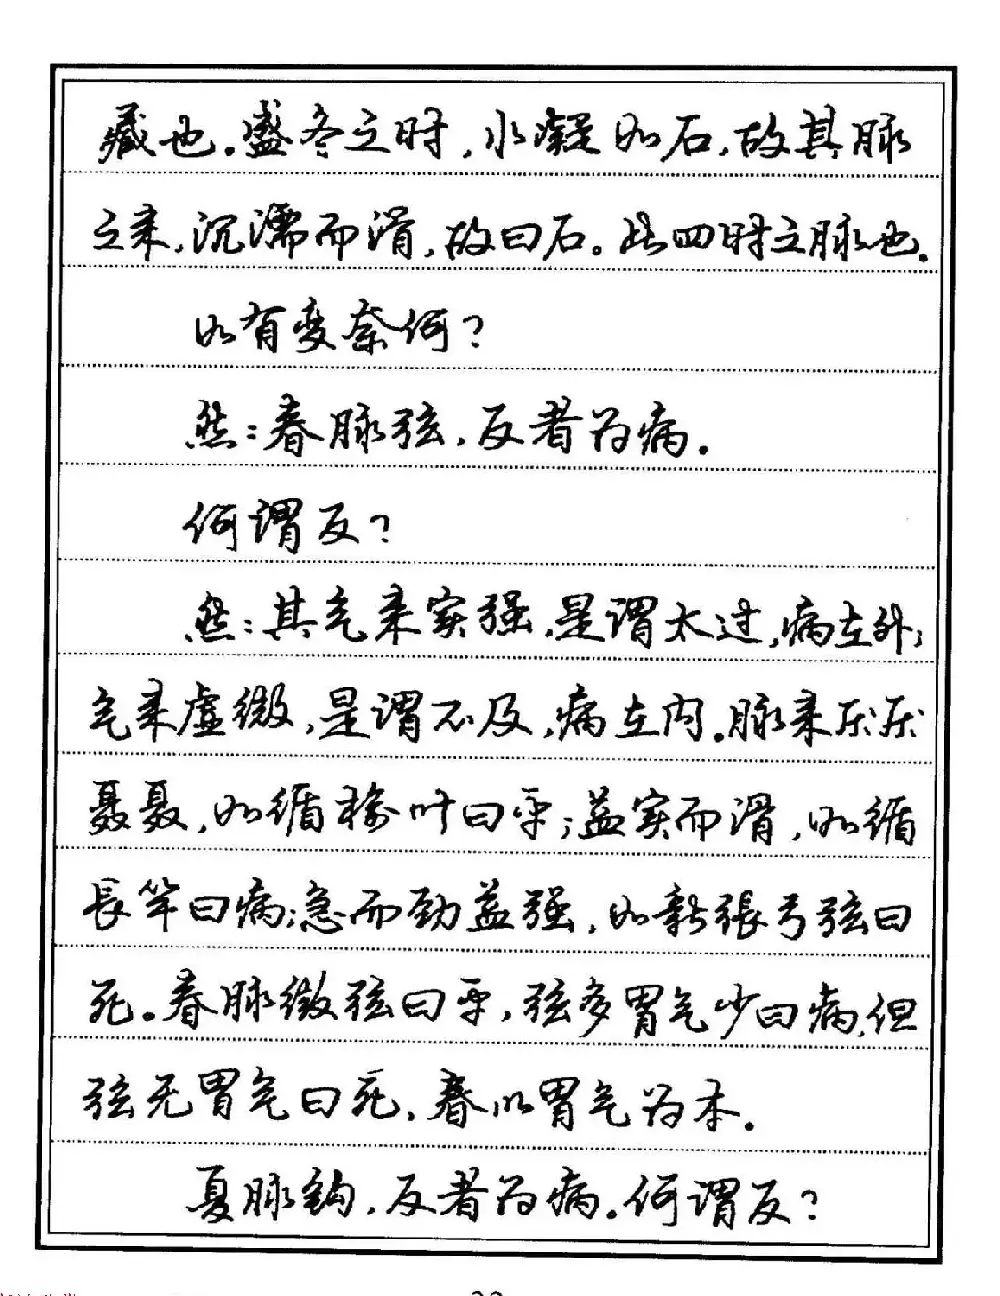 藏也。盛冬之时，水凝如石，故其脉
之来，沉濡而滑，故曰石。此四时之脉也。
如有变奈何？
然：春脉弦，反者为病。
何谓反？
然：其气来实强，是谓太过，病在外；
气来虚微，是谓不及，病在内。脉来厌厌
聂聂，如循榆叶曰平；益实而滑，如循
長竿曰病；急而劲益强，如新張弓弦曰
死。春脉微弦曰平，弦多胃气少曰病，但
弦无胃气曰死，春以胃气为本。
夏脉钩，反者为病。何谓反？